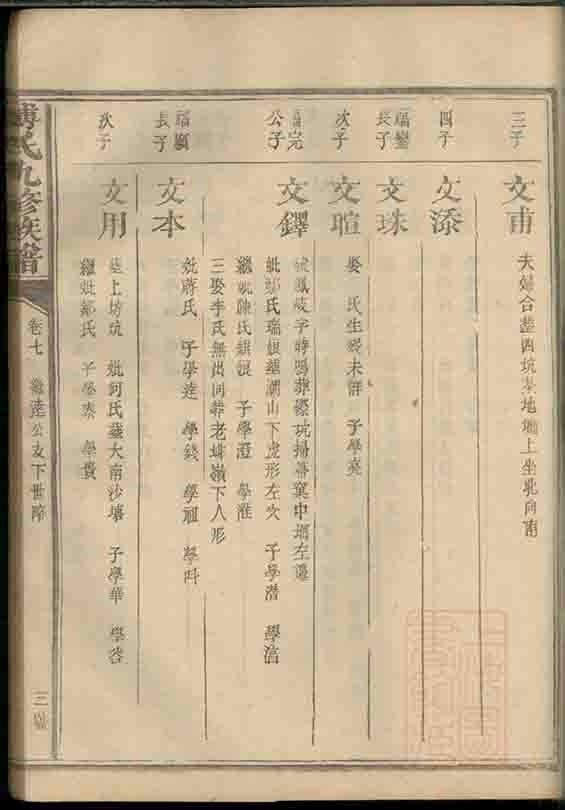 三子
文甫
夫婦合葬西坑本地塘上坐北向南
四子
文添
福鑾長子
文珠
次子
文暄
娶 氏生歿未詳 子學亮
完公子
文鐸
鳳岐字時鳴葬 坑掃帚窠中 左邊
妣 氏瑞娘 潮山下虎形左穴 子學潛 學
繼妣陳氏 娘 子學澄 學淮
三娶李氏無出同葬老 嶺下人形
福廣長子
文本
妣蔣氏 子學達 學錢 學祖 學
次子
文用
葬上坊坑 妣阿氏葬大南沙壩 子學華 學
繼妣鄒氏 子學泰 學貴
氏九修族譜
卷七 達公支下世序
三